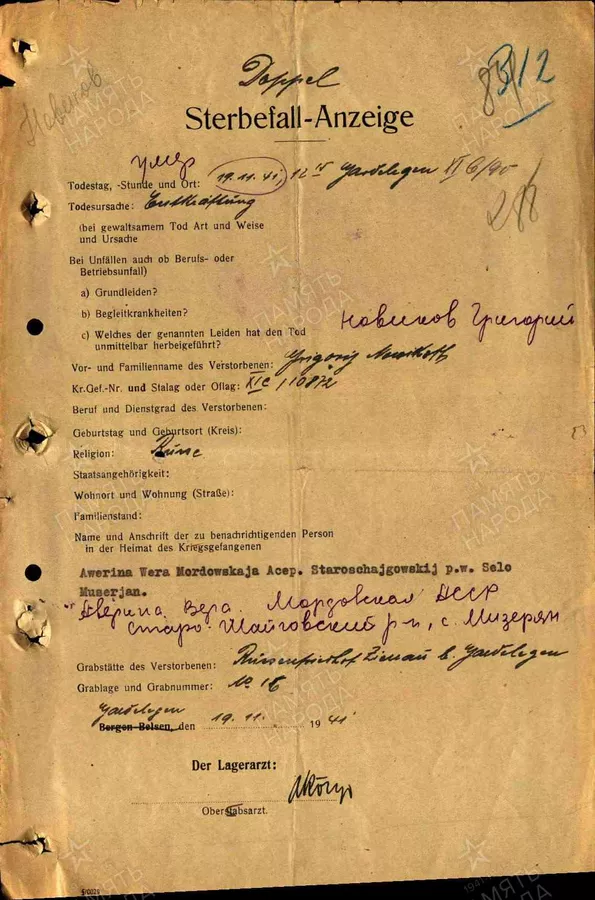 Doppel
83/12
Новиков
Sterbefall-Anzeige
умер
Todestag, -Stunde und Ort: 19.11.41, 12 Gardelegen XI
Todesursache: Entkräftung
(bei gewaltsamem Tod Art und Weise
und Ursache
288
Bei Unfällen auch ob Berufs- oder
Betriebsunfall)
a) Grundleiden?
b) Begleitkrankheiten?
Новиков Григорий
c) Welches der genannten Leiden hat den Tod
unmittelbar herbeigeführt?
Vor- und Familienname des Verstorbenen: Grigorij Nowikoff
Kr.Gef.-Nr. und Stalag oder Oflag: XI C / 10872
Beruf und Dienstgrad des Verstorbenen:
Geburtstag und Geburtsort (Kreis):
Religion: Russe
Staatsangehörigkeit:
Wohnort und Wohnung (Straße):
Familienstand:
Name und Anschrift der zu benachrichtigenden Person
in der Heimat des Kriegsgefangenen
Awerina Wera Mordowskaja Acep. Staroschajgowskij p.w. Selo
Muserjan.
Аверина Вера. Мордовская АССР
Старо-Шайговский р-н, с. Мизерян
Grabstätte des Verstorbenen: Russenfriedhof Zienau b. Gardelegen
Grablage und Grabnummer: No 18
Gardelegen
Bergen-Belsen, den 19.11. 1941
Der Lagerarzt:
Oberstabsarzt.
5/0029
ПАМЯТЬ НАРОДА